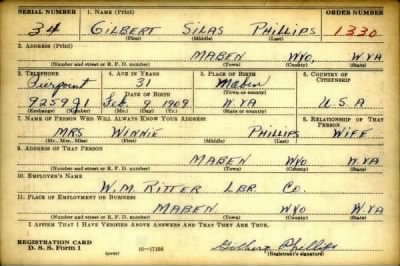 SERIAL NUMBER 1. NAME (Print) ORDER NUMBER
34 GILBERT SILAS PHILLIPS 1330
(First) (Middle) (Last)
2. ADDRESS (Print)
MABEN WYO, W.VA
(Number and street or R. F. D. number) (Town) (County) (State)
3. TELEPHONE 4. AGE IN YEARS 5. PLACE OF BIRTH 6. COUNTRY OF CITIZENSHIP
Pierpont 31 Maben
DATE OF BIRTH (Town or county)
925921 Feb. 9 1909 W.VA U.S.A
(Exchange) (Number) (Mo.) (Day) (Yr.) (State or country)
7. NAME OF PERSON WHO WILL ALWAYS KNOW YOUR ADDRESS 8. RELATIONSHIP OF THAT PERSON
MRS WINNIE PHILLIPS WIFE
(Mr., Mrs., Miss) (First) (Middle) (Last)
9. ADDRESS OF THAT PERSON
MABEN WYO W.VA
(Number and street or R. F. D. number) (Town) (County) (State)
10. EMPLOYER'S NAME
W.M. RITTER LBR Co.
11. PLACE OF EMPLOYMENT OR BUSINESS
MABEN WYO W.VA
(Number and street or R. F. D. number) (Town) (County) (State)
I AFFIRM THAT I HAVE VERIFIED ABOVE ANSWERS AND THAT THEY ARE TRUE.
REGISTRATION CARD
D. S. S. Form 1 (over) 16—17105 Gilbert Phillips
(Registrant's signature)